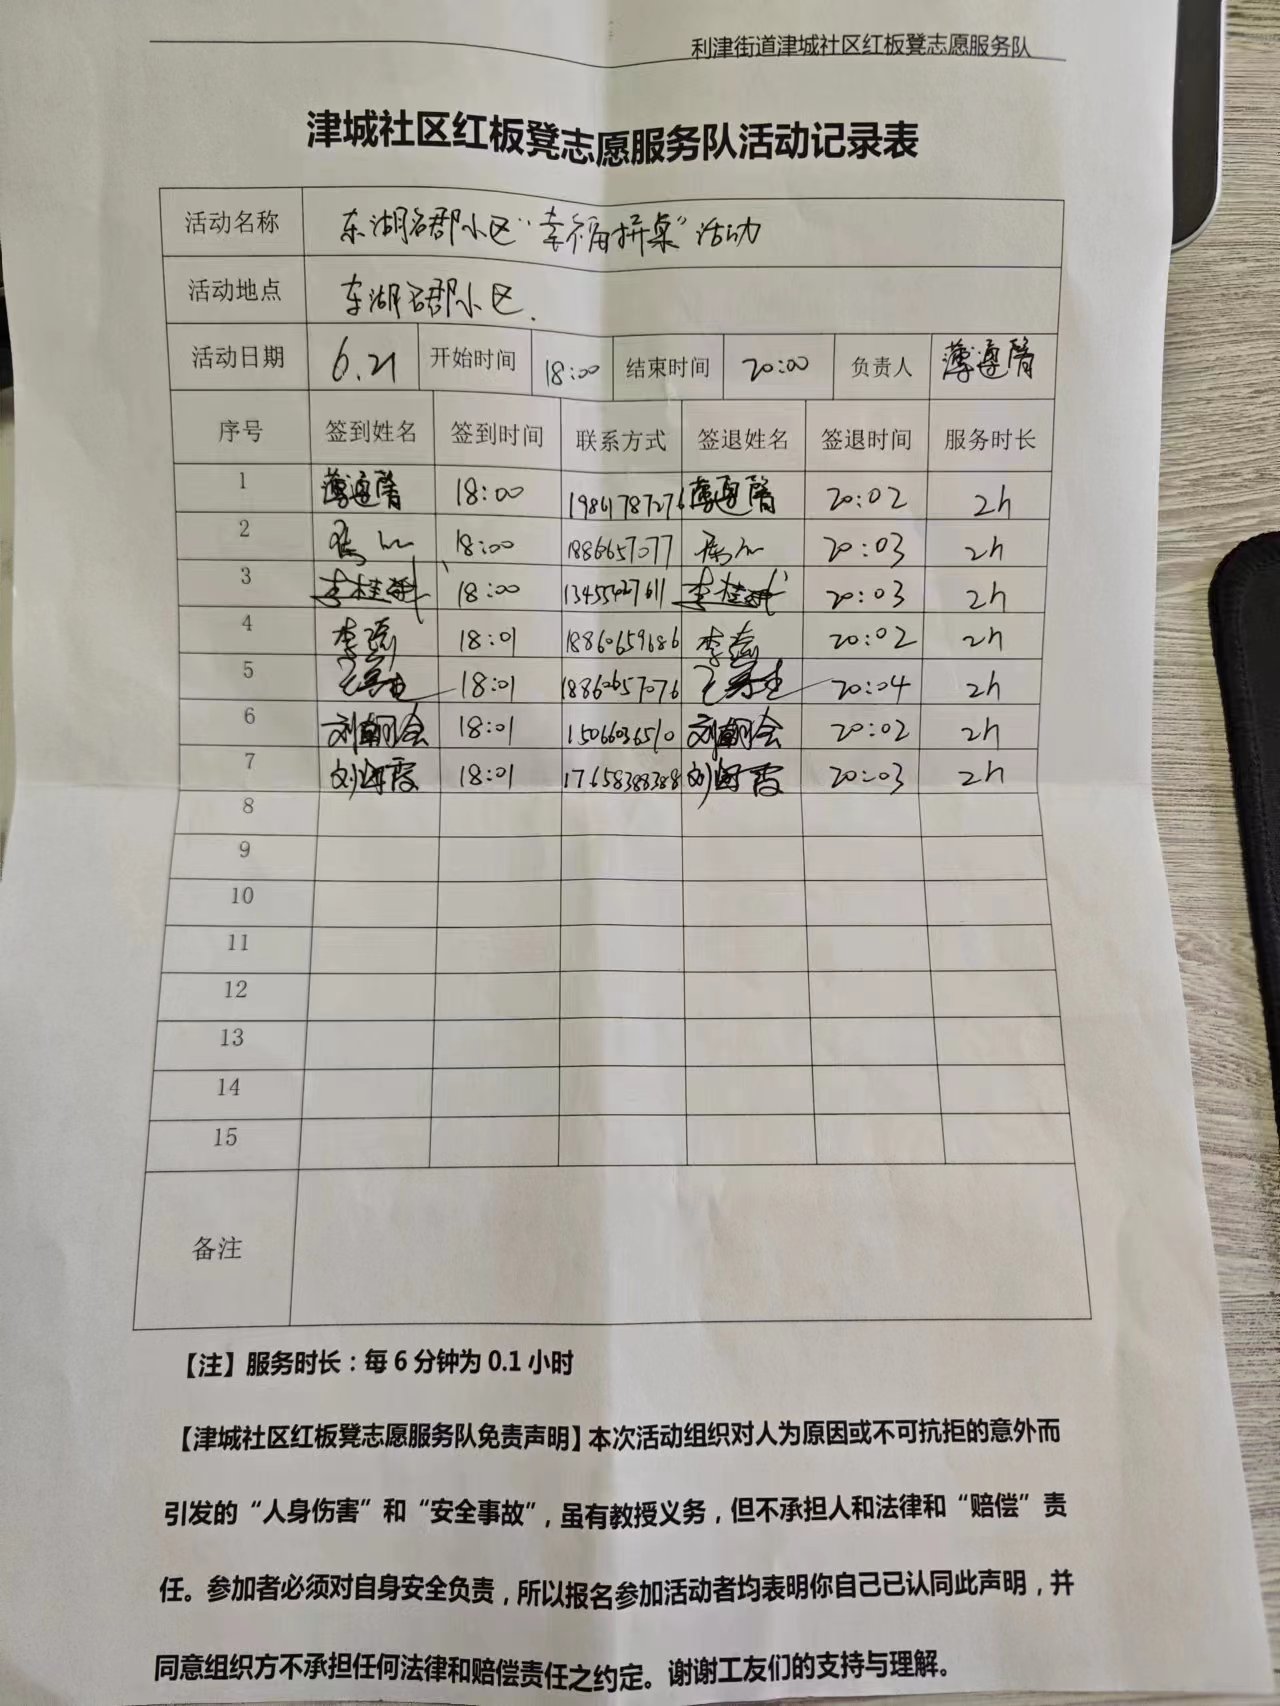 利津街道津城社区红板凳志愿服务队
津城社区红板凳志愿服务队活动记录表
活动名称 东湖名郡小区“幸福拼桌”活动
活动地点 东湖名郡小区.
活动日期 6.21 开始时间 18:00 结束时间 20:00 负责人 薄遵腎
序号 签到姓名 签到时间 联系方式 签退姓名 签退时间 服务时长
1 18:00 20:02 2h
2 18:00 1886657077 20:03 2h
3 李桂 18:00 李桂 20:03 2h
4 李磊 18:01 18860659686 李磊 20:02 2h
5 18:01 18860657076 20:04 2h
6 刘朝会 18:01 刘朝会 20:02 2h
7 刘海霞 18:01 17658388388 刘海霞 20:03 2h
8
9
10
11
12
13
14
15
备注
【注】服务时长：每 6 分钟为 0.1 小时
【津城社区红板凳志愿服务队免责声明】本次活动组织对人为原因或不可抗拒的意外而
引发的“人身伤害”和“安全事故”，虽有教授义务，但不承担人和法律和“赔偿”责
任。参加者必须对自身安全负责，所以报名参加活动者均表明你自己已认同此声明，并
同意组织方不承担任何法律和赔偿责任之约定。谢谢工友们的支持与理解。